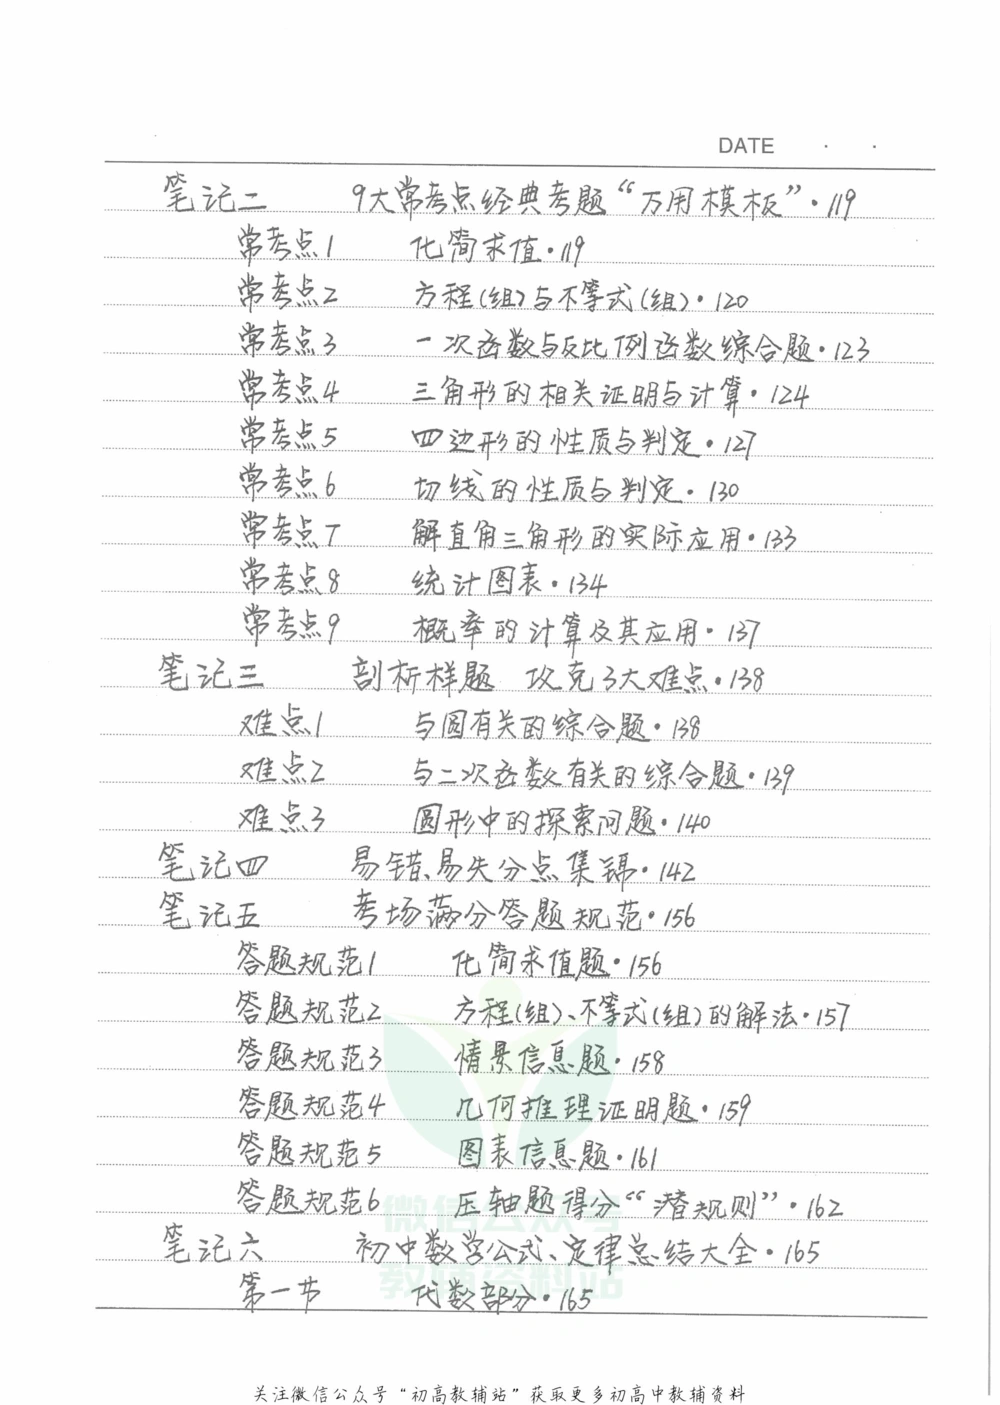 DATE · ·
笔记二 9大常考点经典考题“万用模板”·119
常考点1 化简求值·119
常考点2 方程(组)与不等式(组)·120
常考点3 一次函数与反比例函数综合题·123
常考点4 三角形的相关证明与计算·124
常考点5 四边形的性质与判定·127
常考点6 切线的性质与判定·130
常考点7 解直角三角形的实际应用·133
常考点8 统计图表·134
常考点9 概率的计算及其应用·137
笔记三 剖析样题 攻克3大难点·138
难点1 与圆有关的综合题·138
难点2 与二次函数有关的综合题·139
难点3 圆形中的探索问题·140
笔记四 易错、易失分点集锦·142
笔记五 考场满分答题规范·156
答题规范1 化简求值题·156
答题规范2 方程(组)、不等式(组)的解法·157
答题规范3 情景信息题·158
答题规范4 几何推理证明题·159
答题规范5 图表信息题·161
答题规范6 压轴题得分“潜规则”·162
微信公众号
笔记六 初中数学公式、定律总结大全·165
教辅资料站
第一节 代数部分·165
关注微信公众号“初高教辅站”获取更多初高中教辅资料